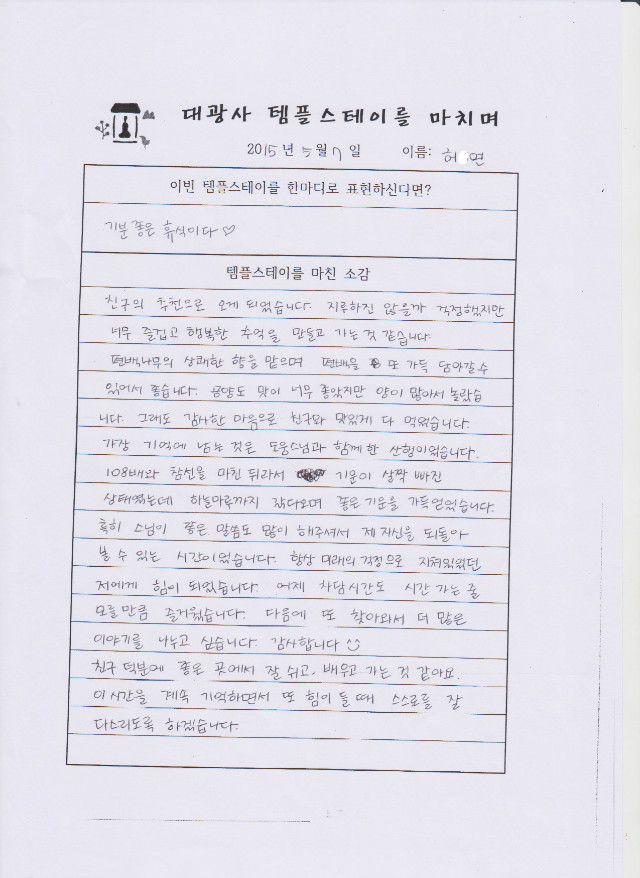 대광사 템플스테이를 마치며
2015년 5월 7일 이름: 허 연
이번 템플스테이를 한마디로 표현하신다면?
기분 좋은 휴식이다 ♡
템플스테이를 마친 소감
친구의 추천으로 오게 되었습니다. 지루하진 않을까 걱정했지만
너무 즐겁고 행복한 추억을 만들고 가는 것 같습니다.
편백나무의 상쾌한 향을 맡으며 편백을 또 가득 담아갈수
있어서 좋습니다. 공양도 맛이 너무 좋았지만 양이 많아서 놀랐습
니다. 그래도 감사한 마음으로 친구와 맛있게 다 먹었습니다.
가장 기억에 남는 것은 도움스님과 함께한 산행이었습니다.
108배와 참선을 마친 뒤라서 기운이 살짝 빠진
상태였는데 하늘마루까지 갔다오며 좋은 기운을 가득얻었습니다.
특히 스님이 좋은 말씀도 많이 해주셔서 제 자신을 되돌아
볼 수 있는 시간이었습니다. 항상 미래의 걱정으로 지쳐있었던
저에게 힘이 되었습니다. 어제 차담시간도 시간 가는 줄
모를만큼 즐거웠습니다. 다음에 또 찾아와서 더 많은
이야기를 나누고 싶습니다. 감사합니다 ☺
친구 덕분에 좋은 곳에서 잘 쉬고, 배우고 가는 것 같아요.
이 시간을 계속 기억하면서 또 힘이 들 때 스스로를 잘
다스리도록 하겠습니다.